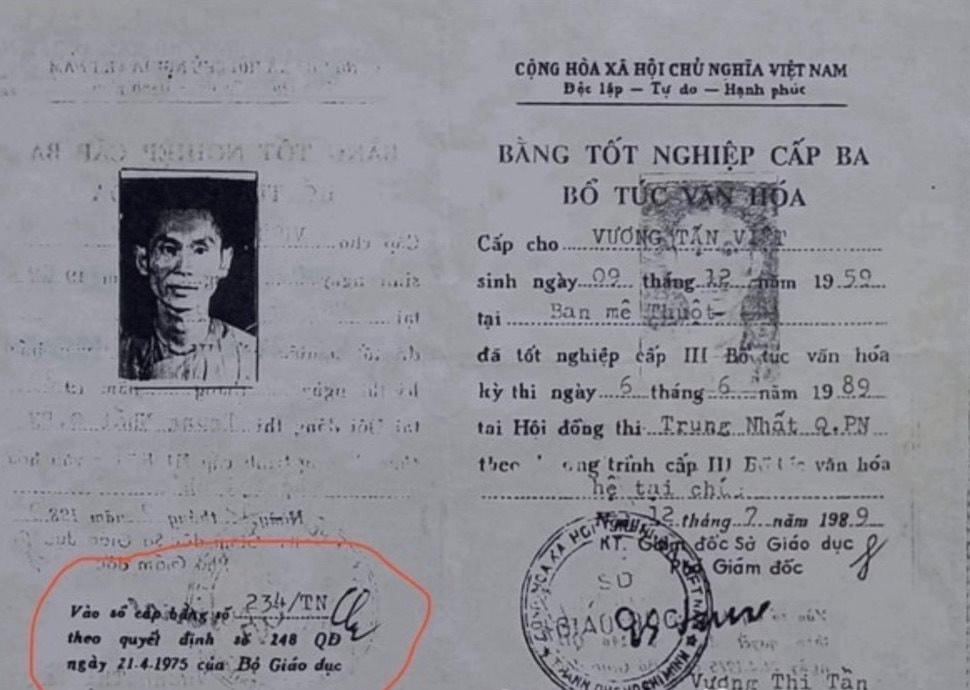 CỘNG HÒA XÃ HỘI CHỦ NGHĨA VIỆT NAM
Độc lập — Tự do — Hạnh phúc
BẰNG TỐT NGHIỆP CẤP BA
BỔ TÚC VĂN HÓA
Cấp cho VƯƠNG TẤN VIỆT
sinh ngày 09 tháng 12 năm 1959
tại Ban mê Thuột
đã tốt nghiệp cấp III Bổ túc văn hóa
kỳ thi ngày 6 tháng 6 năm 1989
tại Hội đồng thi Trung Nhất Q.PN
trình cấp III văn hóa
hệ tại
12 tháng 7 năm 1989
KT. Giám đốc Sở Giáo dục
Phó Giám đốc
SỞ
GIÁO DỤC
Vương Thị Tần
Vào sổ cấp bằng số 234/TN
theo quyết định số 148 QĐ
ngày 21.4.1975 của Bộ Giáo dục